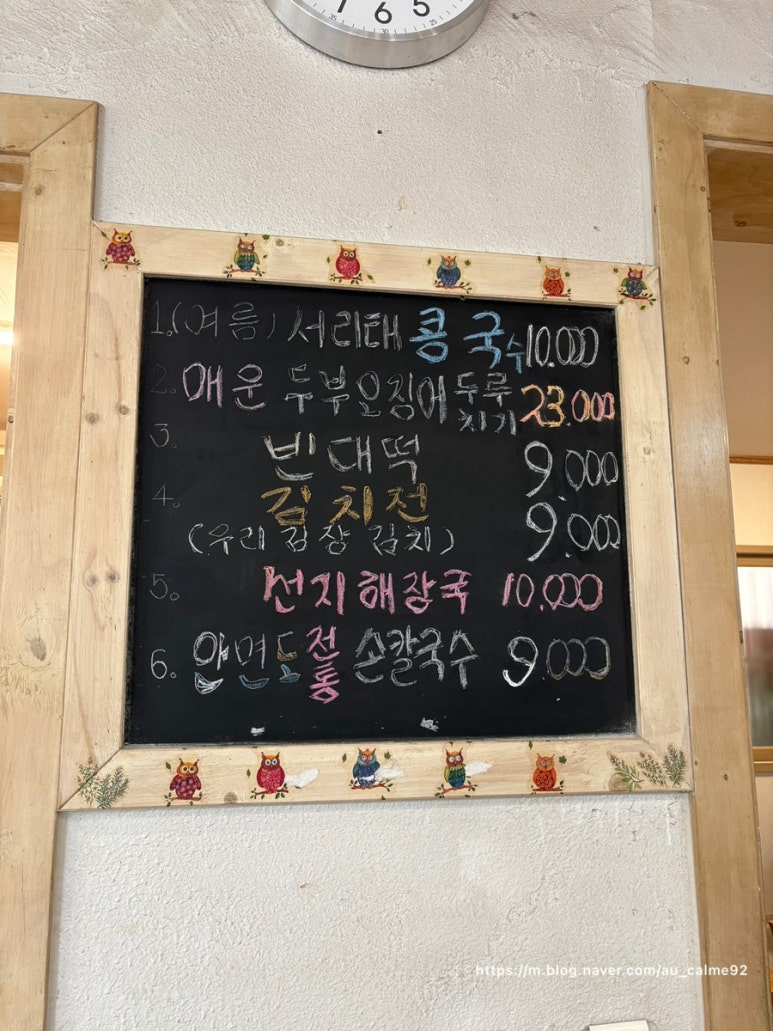 7 6 5
35 30 25
1.(여름) 서리태 콩국수 10.000
2. 매운 두부오징어두루치기 23.000
3. 빈대떡 9.000
4. 김치전 9.000
(우리 김장 김치)
5. 선지해장국 10.000
6. 안면도전통손칼국수 9.000
https://m.blog.naver.com/au_calme92